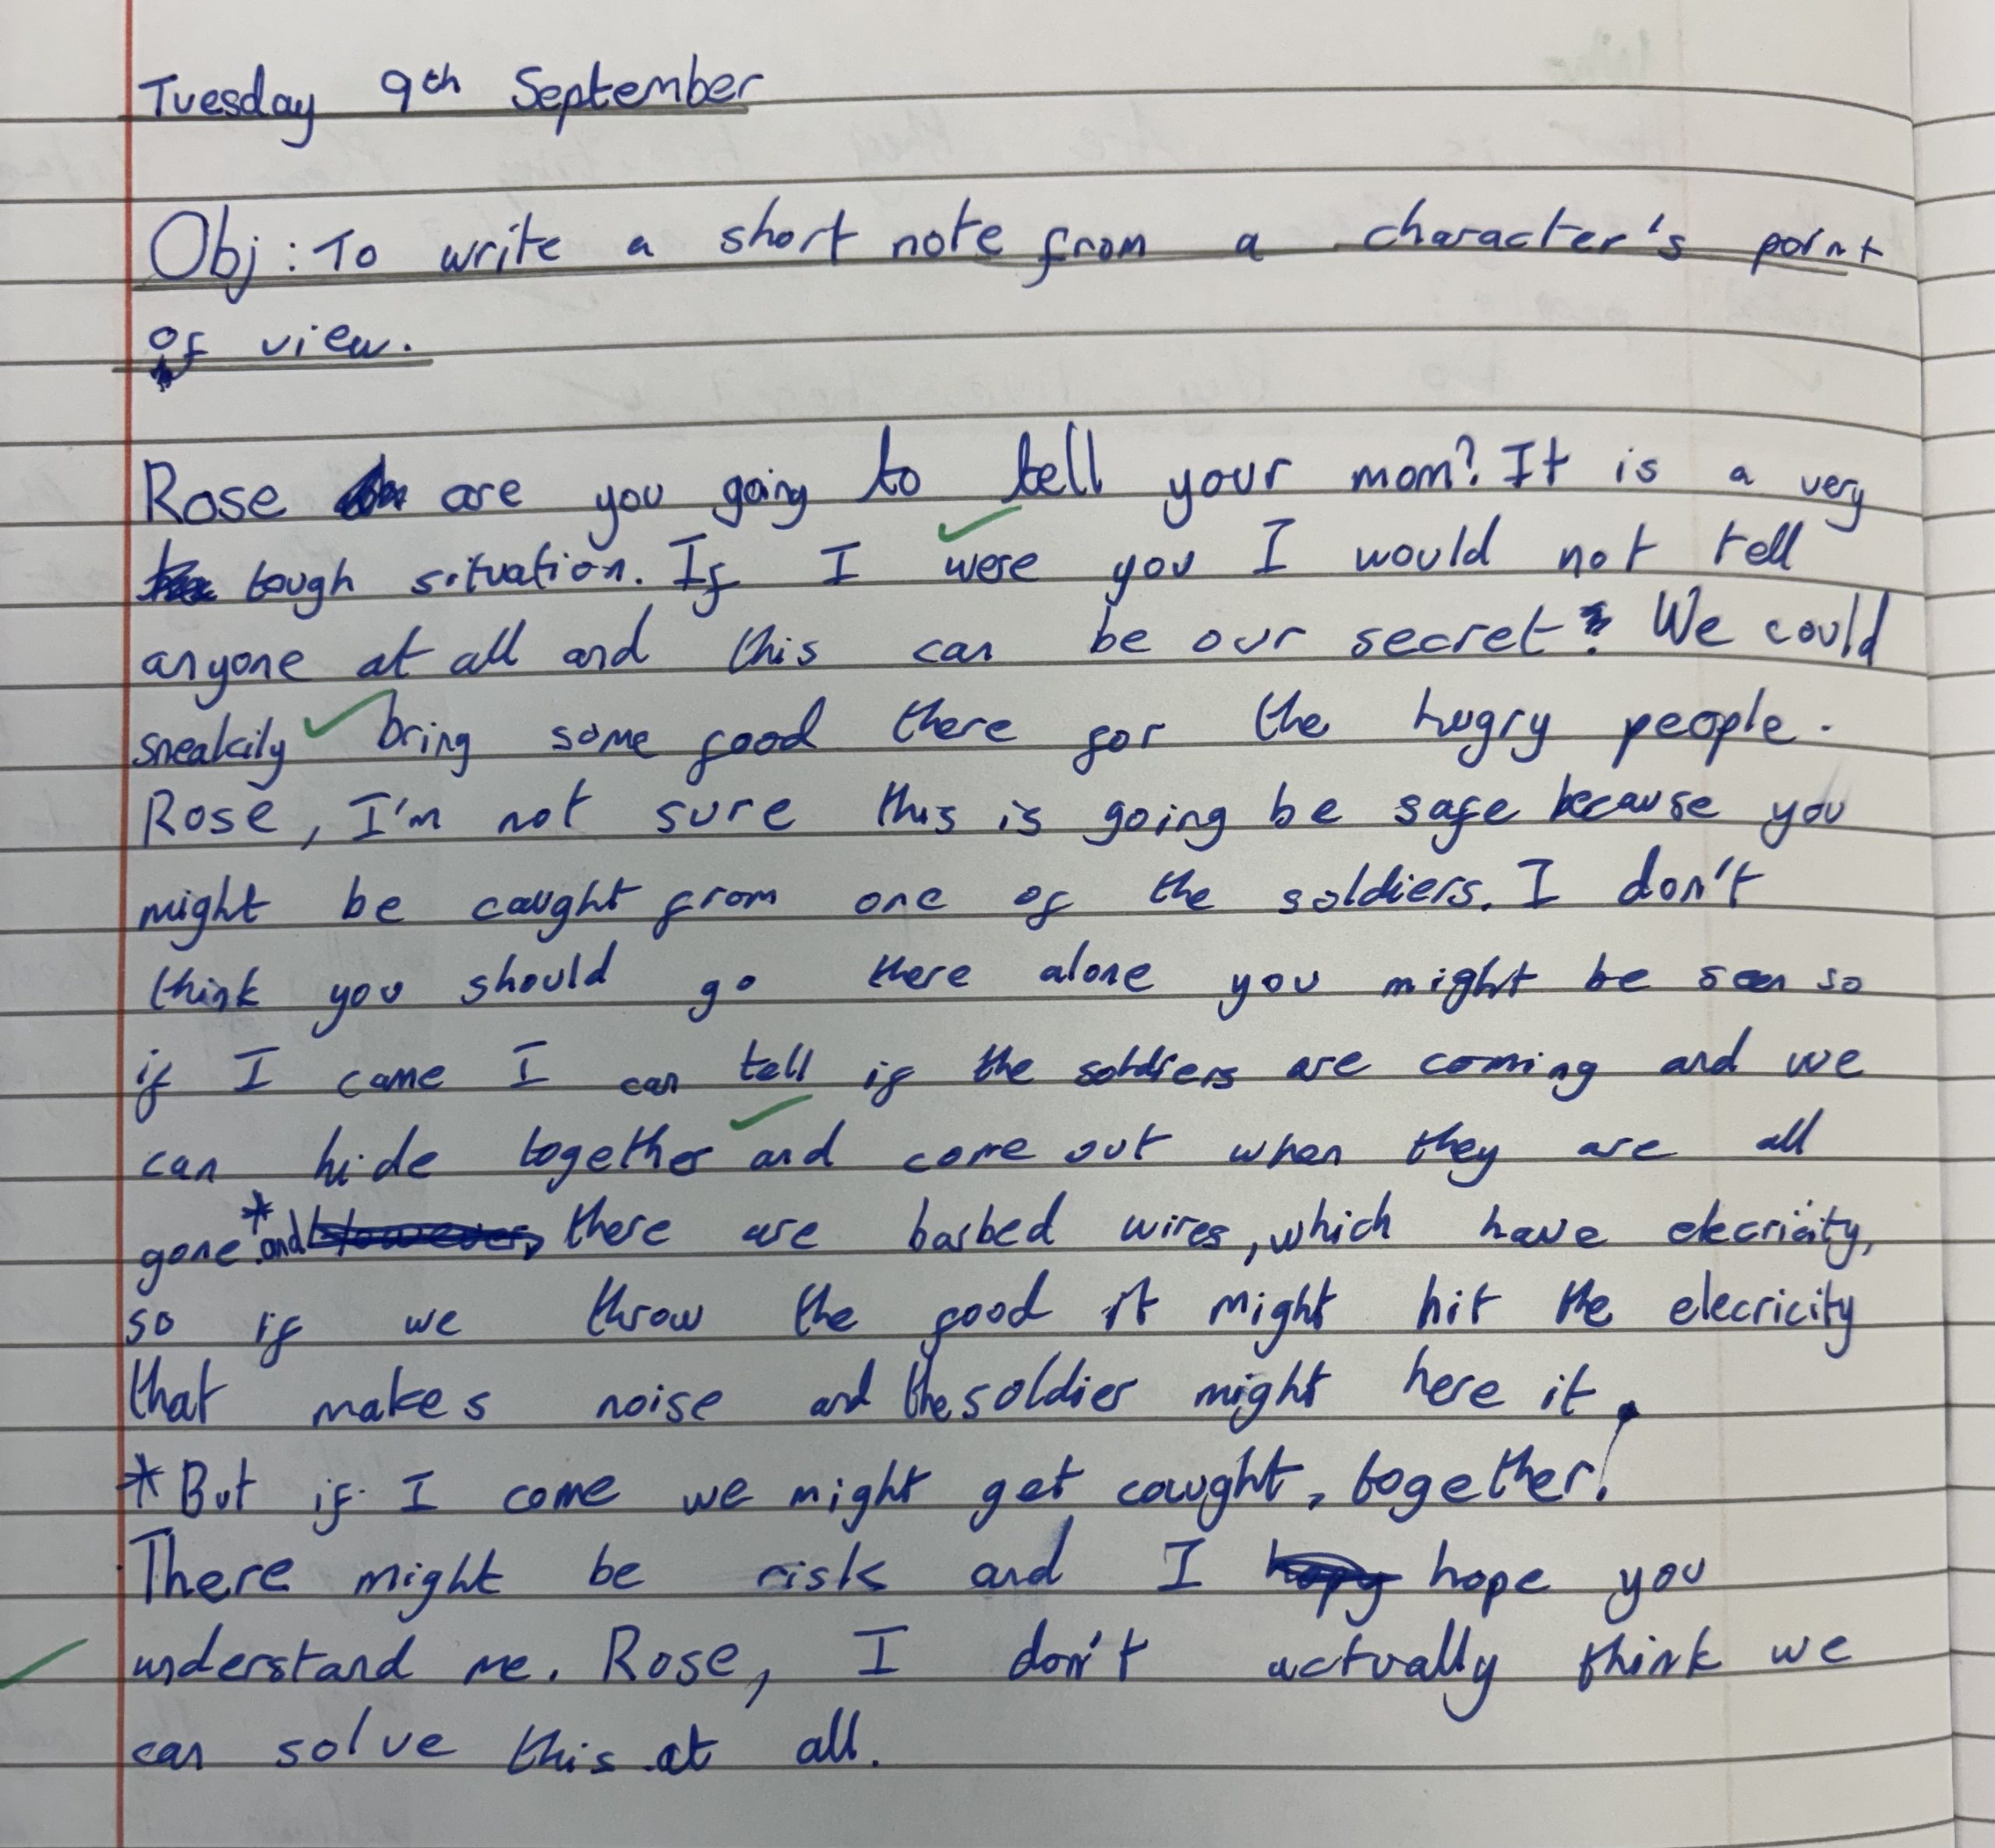 Tuesday 9th September
Obj: To write a short note from a character's point
of view.
Rose are you going to tell your mom? It is a very
tough situation. If I were you I would not tell
anyone at all and this can be our secret. We could
sneakily bring some food there for the hugry people.
Rose, I'm not sure this is going be safe because you
might be caught from one of the soldiers. I don't
think you should go there alone you might be seen so
if I came I can tell if the soldiers are coming and we
can hide together and come out when they are all
gone.* and there are barbed wires, which have elecricity,
so if we throw the food it might hit the elecricity
that makes noise and the soldier might here it.
*But if I come we might get caught, together!
There might be risk and I hope you
understand me. Rose, I don't actually think we
can solve this at all.